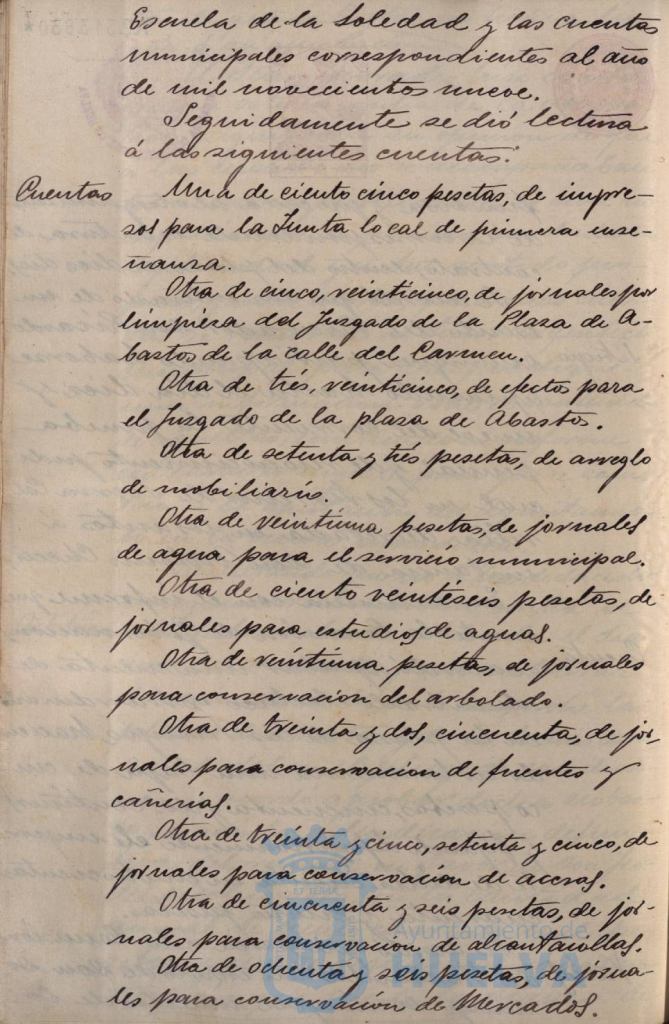 Escuela de la Soledad y las cuentas
municipales correspondientes al año
de mil novecientos nueve.
Seguidamente se dió lectura
á las siguientes cuentas:
Cuentas
Una de ciento cinco pesetas, de impre-
sos para la Junta local de primera ense-
ñanza.
Otra de cinco, veinticinco, de jornales por
limpieza del Juzgado de la Plaza de A-
bastos de la calle del Carmen.
Otra de trés, veinticinco, de efectos para
el Juzgado de la plaza de Abastos.
Otra de setenta y trés pesetas, de arreglo
de mobiliario.
Otra de veintiuna pesetas, de jornales
de agua para el servicio municipal.
Otra de ciento veintéseis pesetas, de
jornales para estudios de aguas.
Otra de veintiuna pesetas, de jornales
para conservacion del arbolado.
Otra de treinta y dos, cincuenta, de jor-
nales para conservacion de fuentes y
cañerias.
Otra de treinta y cinco, setenta y cinco, de
jornales para conservacion de aceras.
Otra de cincuenta y seis pesetas, de jor-
nales para conservacion de alcantarillas.
Otra de ochenta y seis pesetas, de jorna-
les para conservación de Mercados.
Ayuntamiento de
HUELVA